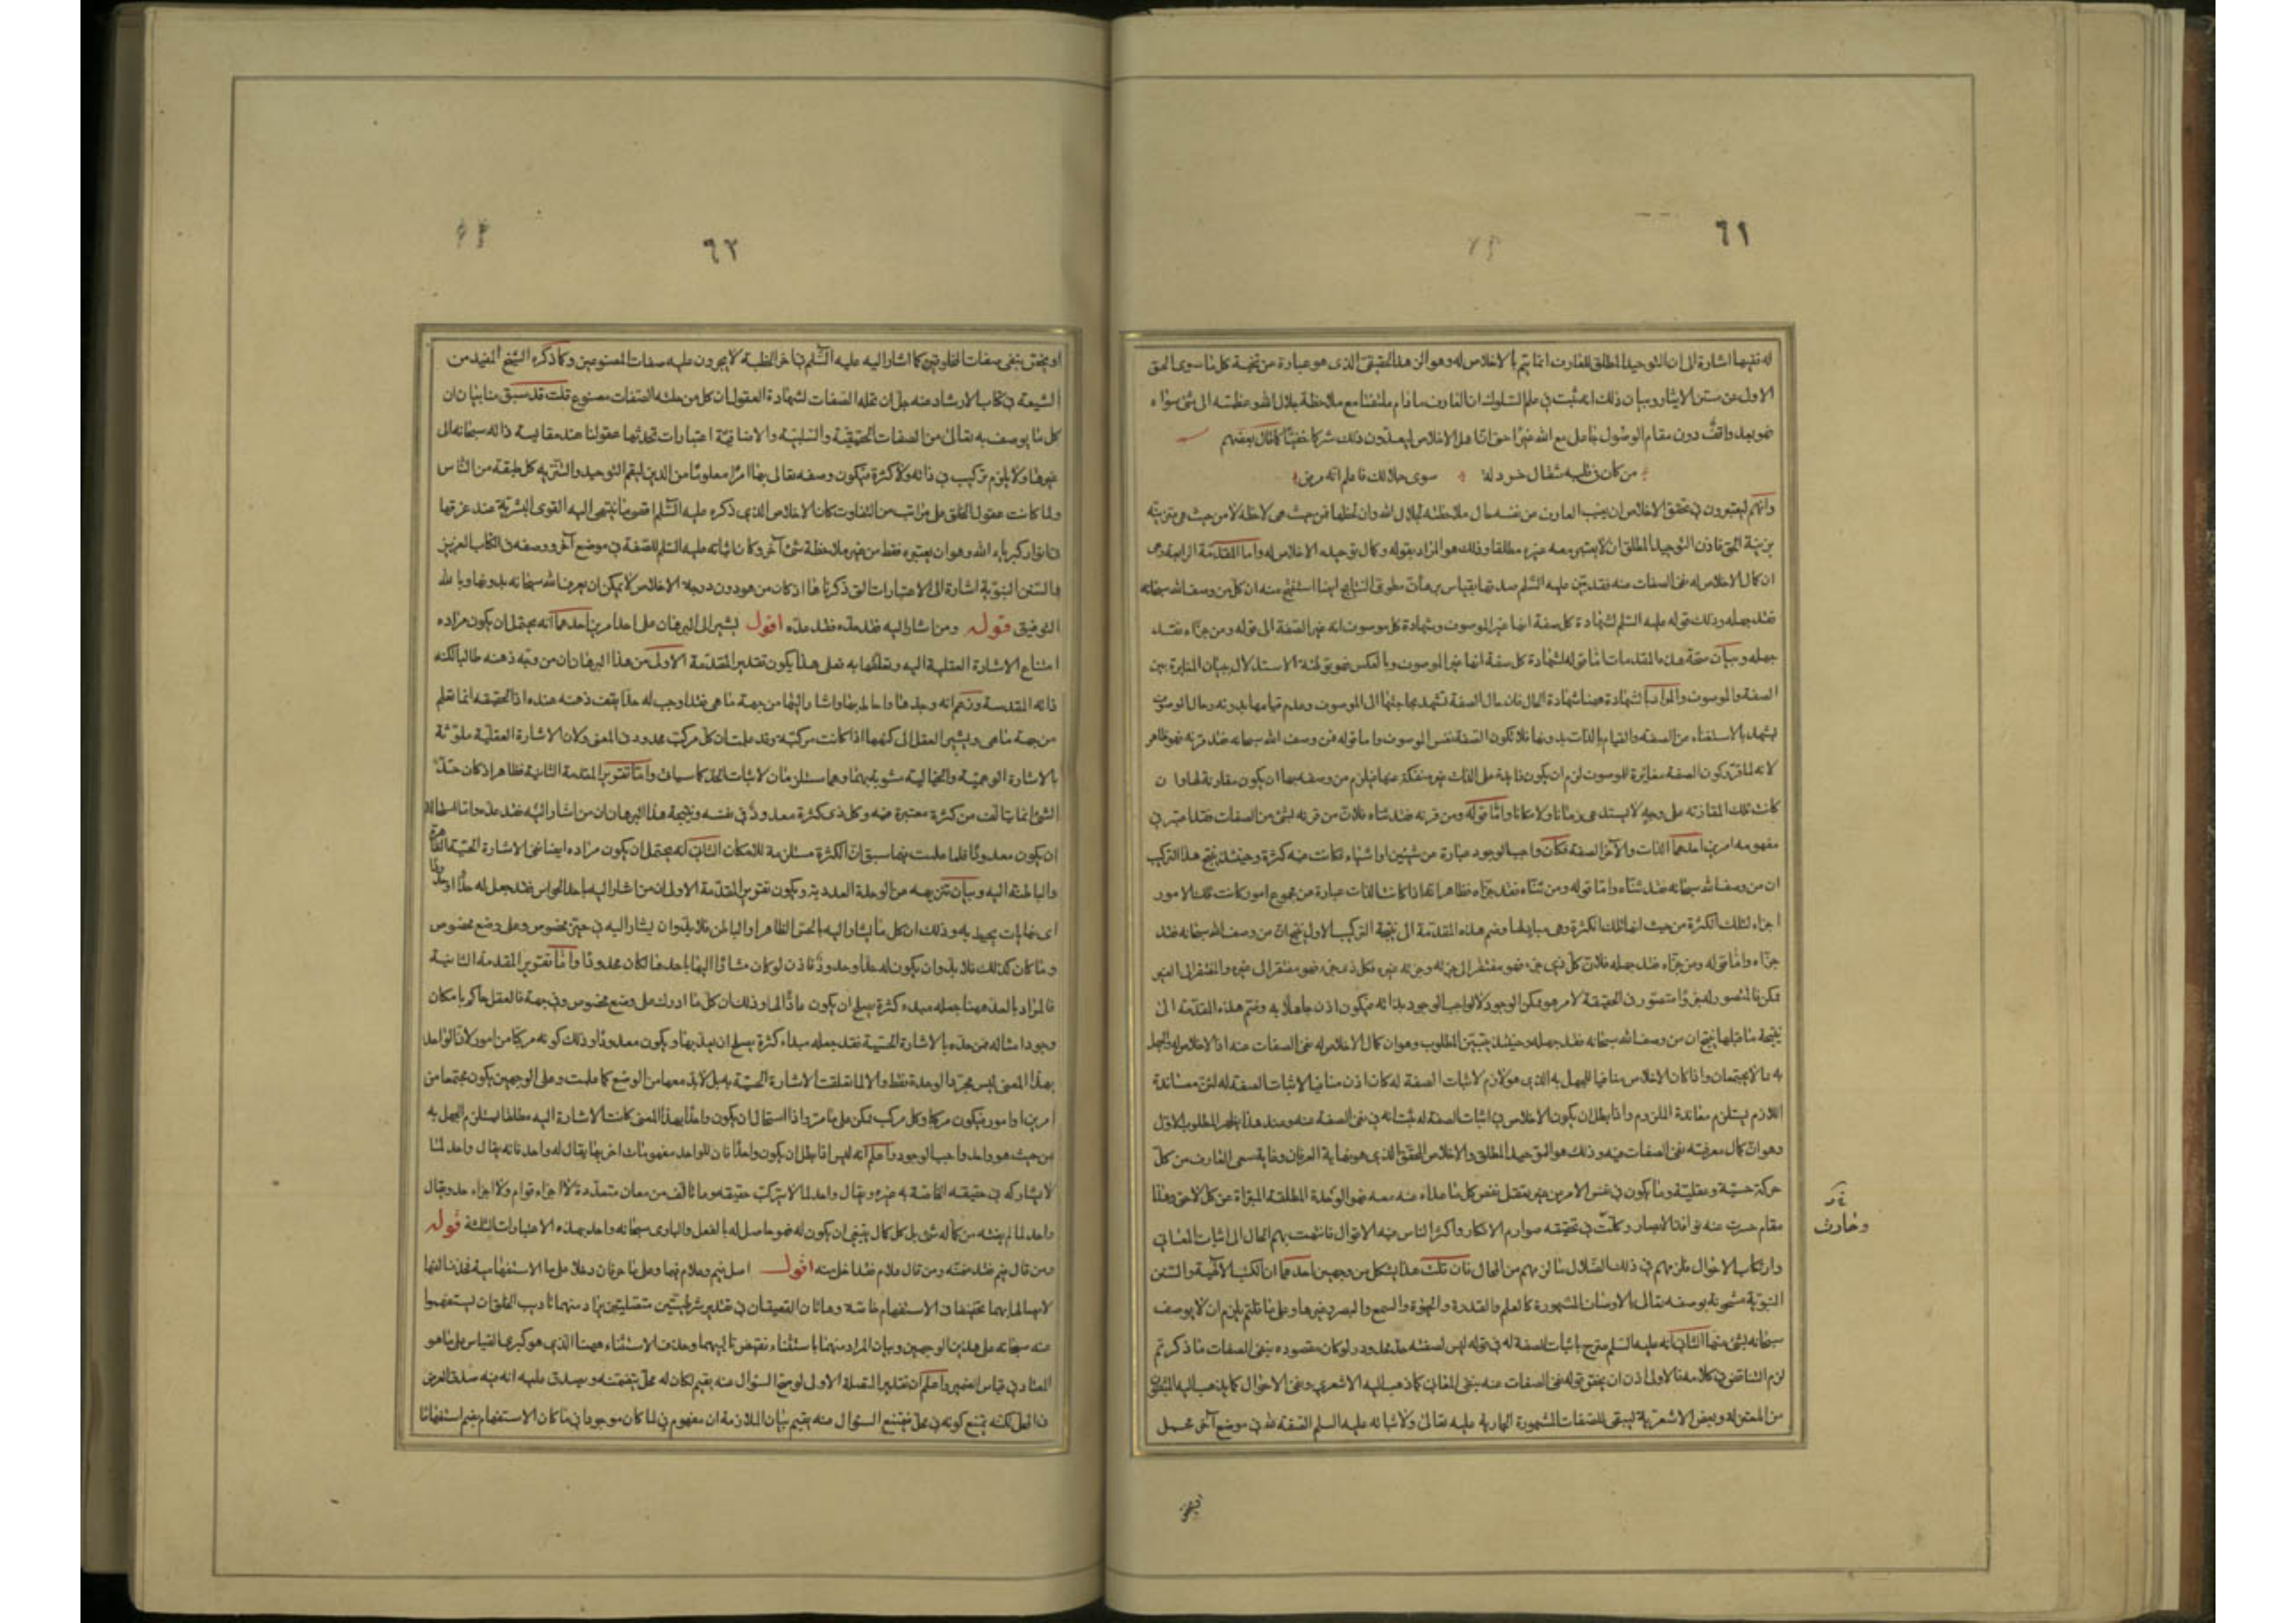 ٦١
له نتيها اشارة الى ان التوحيد المطلق للعارف انما يتم بالاخلاص له وهو الزهد الحقيقى الذى هو عبارة عن تنحية كل ما سوى الحق
الاول عن سنن الايثار وبيان ذلك انه ثبت فى علم السلوك ان العارف ما دام ملتفتا مع ملاحظة جلال الله وعظمته الى شئ سواه
فهو بعد واقف دون مقام الوصول جاعل مع الله غيرا حتى ان اهل الاخلاص ليعدون ذلك شركا خفيا كما قال بعضهم
من كان فى قلبه مثقال خردلة سوى جلالك فاعلم انه مرض
وانهم ليعتبرون فى تحقق الاخلاص ان يغيب العارف عن نفسه حال ملاحظته لجلال الله وان لحظها فمن حيث هى لاحظة لا من حيث هى متزينة
بزينة الحق فاذن التوحيد المطلق ان لا يعتبر معه غيره مطلقا وذلك هو المراد بقوله وكمال توحيده الاخلاص له واما المقدمة الرابعة وهى
ان كمال الاخلاص له نفى الصفات عنه فقد بين عليه السلم صدقها بقياس برهانى مطوى النتايج ايضا استنتج منه ان كل من وصف الله سبحانه
فقد جهله وذلك قوله عليه السلم لشهادة كل صفة انها غير الموصوف وشهادة كل موصوف انه غير الصفة الى قوله ومن جزاه فقد
جهله وبيان صحة هذه المقدمات اما قوله لشهادة كل صفة انها غير الموصوف وبالعكس فهو توطئة الاستدلال ببيان المغايرة بين
الصفة والموصوف والمراد بالشهادة ههنا شهادة الحال فان حال الصفة تشهد بحاجتها الى الموصوف وعدم قيامها بدونه وحال الموصوف
تشهد بالاستغناء عن الصفة والقيام بالذات بدونها فلا تكون الصفة نفس الموصوف واما قوله فمن وصف الله سبحانه فقد قرنه فهو ظاهر
لانه لما قرر كون الصفة مغايرة للموصوف لزم ان يكون زايدة على الذات غير منفكة عنها فيلزم من وصفه بها ان يكون مقارنة لها وان
كانت تلك المقارنة على وجه لا يستدعى زمانا ولا مكانا واما قوله ومن قرنه فقد ثناه فلان من قرنه بشئ من الصفات فقد اعتبر فى
مفهومه امرين احدهما الذات والآخر الصفة فكان واجب الوجود عبارة عن شيئين او اشياء فكانت فيه كثرة وحينئذ ينتج هذا التركيب
ان من وصف الله سبحانه فقد ثناه واما قوله ومن ثناه فقد جزاه فظاهر انه اذا كانت الذات عبارة عن مجموع امور كانت تلك الامور
اجزاء لتلك الكثرة من حيث انها تلك الكثرة وهى مباديها وضم هذه المقدمة الى نتيجة التركيب الاول ينتج ان من وصف الله سبحانه فقد
جزاه واما قوله ومن جزاه فقد جهله فلان كل ذى جزء فهو مفتقر الى جزئه وجزئه غيره فكل ذى جزء فهو مفتقر الى غيره والمفتقر الى الغير
ممكن فالمتصور له متصور فى الحقيقة لامر هو ممكن الوجود لا لواجب الوجود بذاته فيكون اذن جاهلا به وضم هذه المقدمة الى
نتيجة ما قبلها ينتج ان من وصف الله سبحانه فقد جهله وحينئذ يتبين المطلوب وهو ان كمال الاخلاص له نفى الصفات عنه اذ الاخلاص له والجهل
به مما لا يجتمعان واذا كان الاخلاص منافيا للجهل به الذى هو لازم لاثبات الصفة له كان اذن منافيا لاثبات الصفة له لان معاندة
اللازم يستلزم معاندة الملزوم واذا بطل ان يكون الاخلاص فى اثبات الصفة له ثبت انه فى نفى الصفة عنه وعند هذا يظهر المطلوب الاول
وهو ان كمال معرفته نفى الصفات عنه وذلك هو التوحيد المطلق والاخلاص المحقق الذى هو نهاية العرفان وغاية سعى العارف من كل
حركة حسية وعقلية وما يكون فى نفس الامر من غير تعقل نقص كل ما عداه عنه معه فهو الوحدة المطلقة المبراة عن كل لاحق وهذا
مقام حسرت عنه نوافذ الابصار وكلت فى تحقيقه صوارم الافكار واكثر الناس فيه الاقوال فانتهت بهم الحال الى اثبات المعانى
وارتكاب الاحوال فلزمهم فى ذلك الضلال ما لزمهم من المحال فان قلت هذا يشكل من وجهين احدهما ان الكتب الالهية والسنن
النبوية مشحونة بوصفه تعالى بالاوصاف المشهورة كالعلم والقدرة والحيوة والسمع والبصر وغيرها وعلى ما قلتم يلزم ان لا يوصف
سبحانه بشئ منها الثانى انه عليه السلم صرح باثبات الصفة له فى قوله ليس لصفته حد محدود ولو كان مقصوده بنفى الصفات ما ذكرتم
لزم التناقض فى كلامه فالاولى اذن ان يختص قوله نفى الصفات عنه بنفى المعانى كما ذهب اليه الاشعرى ونفى الاحوال كما يذهب اليه المثبتون
من المعتزلة وبعض الاشعرية ليبقى للصفات المشهورة الجارية عليه تعالى ولاثباته عليه السلم الصفة لله فى موضع آخر محمل
وخارت
٦٢
او يختص بنفى صفات المخلوقين كما اشار اليه عليه السلم فى آخر الخطبة لا يجرون عليه صفات المصنوعين وكما ذكره الشيخ المفيد من
الشيعة فى كتاب الارشاد عنه جل ان تحله الصفات لشهادة العقول ان كل من حلته الصفات مصنوع قلت قد سبق منا بيان ان
كل ما يوصف به تعالى من الصفات الحقيقية والسلبية والاضافية اعتبارات تحدثها عقولنا عند مقايسة ذاته سبحانه الى
غيرها ولا يلزم تركيب فى ذاته ولا كثرة فيكون وصفه تعالى بها امرا معلوما من الدين ليعم التوحيد والتنزيه كل طبقة من الناس
ولما كانت عقول الخلق على مراتب من التفاوت كان الاخلاص الذى ذكره عليه السلم اقصى ما تنتهى اليه القوى البشرية عند غرقها
فى انوار كبرياء الله وهو ان يعتبره فقط من غير ملاحظة شئ آخر وكان اثباته عليه السلم للصفة فى موضع آخر ووصفه فى الكتاب العزيز
والسنن النبوية اشارة الى الاعتبارات التى ذكرناها اذ كان من هو دون درجة الاخلاص لا يمكن ان يعرف الله سبحانه بدونها وبالله
التوفيق قوله ومن اشار اليه فقد حده ومن حده فقد عده اقول يشير الى البرهان على احد امرين احدهما انه يحتمل ان يكون مراده
امتناع الاشارة العقلية اليه وتعلقها به فعلى هذا يكون تقدير المقدمة الاولى من هذا البرهان ان من وجه ذهنه طالبا لكنه
ذاته المقدسة وزعم انه وجدها واحاط بها واشار اليها من جهة ما هى فقد اوجب له حدا يقف ذهنه عنده اذ الحقيقة انما تعلم
من جهة ما هى ويشير العقل الى كنهها اذا كانت مركبة وقد علمت ان كل مركب محدود فى المعنى ولان الاشارة العقلية ملوثة
بالاشارة الوهمية والخيالية مشوبة بهما وهما مستلزمان لاثبات الحد كما سياتى واما تقرير المقدمة الثانية فظاهر اذ كان حد
الشئ انما يتالف من كثرة معتبرة فيه وكل ذى كثرة معدود فى نفسه ونتيجة هذا البرهان ان من اشار اليه فقد عده واما استحالة
ان يكون معدودا فلما علمت فيما سبق ان الكثرة مستلزمة للامكان الثانى انه يحتمل ان يكون مراده ايضا نفى الاشارة الحسية الظاهرة
والباطنة اليه وبيان تنزيهه عن الوحدة العددية ويكون تقرير المقدمة الاولى ان من اشار اليه باحد الحواس فقد جعل له حدا او حدودا
اى نهايات يحيط به وذلك ان كل ما يشار اليه بالحس الظاهر او الباطن فلا بد وان يشار اليه فى حيز مخصوص وعلى وضع مخصوص
وما كان كذلك فلا بد وان يكون له حد او حدود فاذن لو كان مشارا اليها باحدها لكان محدودا واما تقرير المقدمة الثانية
فالمراد بالعد ههنا جعله مبدء كثرة يصلح ان يكون عادا لها وذلك ان كل ما ادرك على وضع مخصوص وفى جهة فالعقل حاكم بامكان
وجود امثاله فمن حده بالاشارة الحسية فقد جعله مبداء كثرة يصلح ان يعد بها ويكون معدودا وذلك كونه مركبا من امور لان الواحد
بهذا المعنى ليس مجرد الوحدة فقط والا لما تعلقت الاشارة الحسية به بل لا بد معها من الوضع كما علمت وعلى الوجهين يكون مجتمعا من
امرين او امور فيكون مركبا وكل مركب ممكن على ما مر واذا استحال ان يكون واحدا بهذا المعنى كانت الاشارة اليه مطلقا يستلزم الجهل به
من حيث هو واحد واجب الوجود واعلم انه ليس اذا بطل ان يكون واحدا فان للواحد مفهومات اخر بها يقال له واحد فانه يقال واحد لما
لا يشاركه فى حقيقته الخاصة به غيره ويقال واحد لما لا يتركب حقيقته وما تالف من معان متعددة لا اجزاء قوام ولا اجزاء حد ويقال
واحد لما لم يفته من كماله شئ بل كل كمال ينبغى ان يكون له فهو حاصل له بالفعل والبارى سبحانه واحد بهذه الاعتبارات الثلثة قوله
ومن قال فيم فقد ضمنه ومن قال علام فقد اخلى منه اقول اصل فيم وعلام فيما وعلى ما حرفان دخلا على ما الاستفهامية فحذف الفها
لاتصالها بهما تخفيفا فى الاستفهام خاصة وهاتان القضيتان فى تقدير شرطيتين متصلتين يراد منهما تاديب الخلق ان يستفهموا
عنه سبحانه على هذين الوجهين وبيان المراد منهما باستثناء نقيض تاليهما وحذف الاستثناء ههنا الذى هو كبرى القياس على ما هو
المعتاد فى قياس الضمير واعلم ان تقدير المتصلة الاولى لو صح السؤال عنه بفيم لكان له محل يتضمنه ويصدق عليه انه فيه صدق العرض
فى المحل لكنه يمتنع كونه فى محل فيمتنع السؤال عنه بفيم بيان الملازمة ان مفهوم فى لما كان موجودا فى ما كان الاستفهام بفيم استفهاما